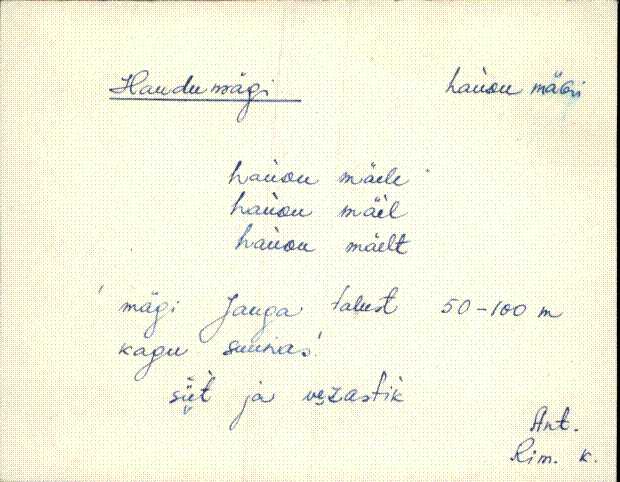 Haudumägi hau̇ɔu mäGi
hau̇ɔu mäele
hau̇ɔu mäel
hau̇ɔu mäelt
'mägi Jauga talust 50-100 m
kagu suunas'
siit ja vezastik
Ant.
Rim. k.